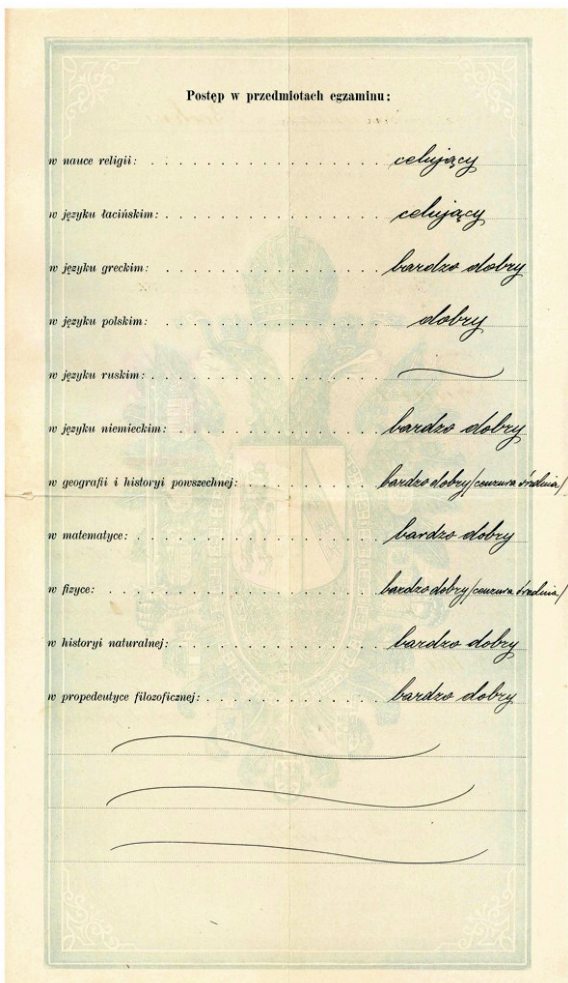 Postęp w przedmiotach egzaminu:
w nauce religii: celujący
w języku łacińskim: celujący
w języku greckim: bardzo dobry
w języku polskim: dobry
w języku ruskim:
w języku niemieckim: bardzo dobry
w geografii i historyi powszechnej: bardzo dobry /cenzura średnia/
w matematyce: bardzo dobry
w fizyce: bardzo dobry /cenzura średnia/
w historyi naturalnej: bardzo dobry
w propedeutyce filozoficznej: bardzo dobry